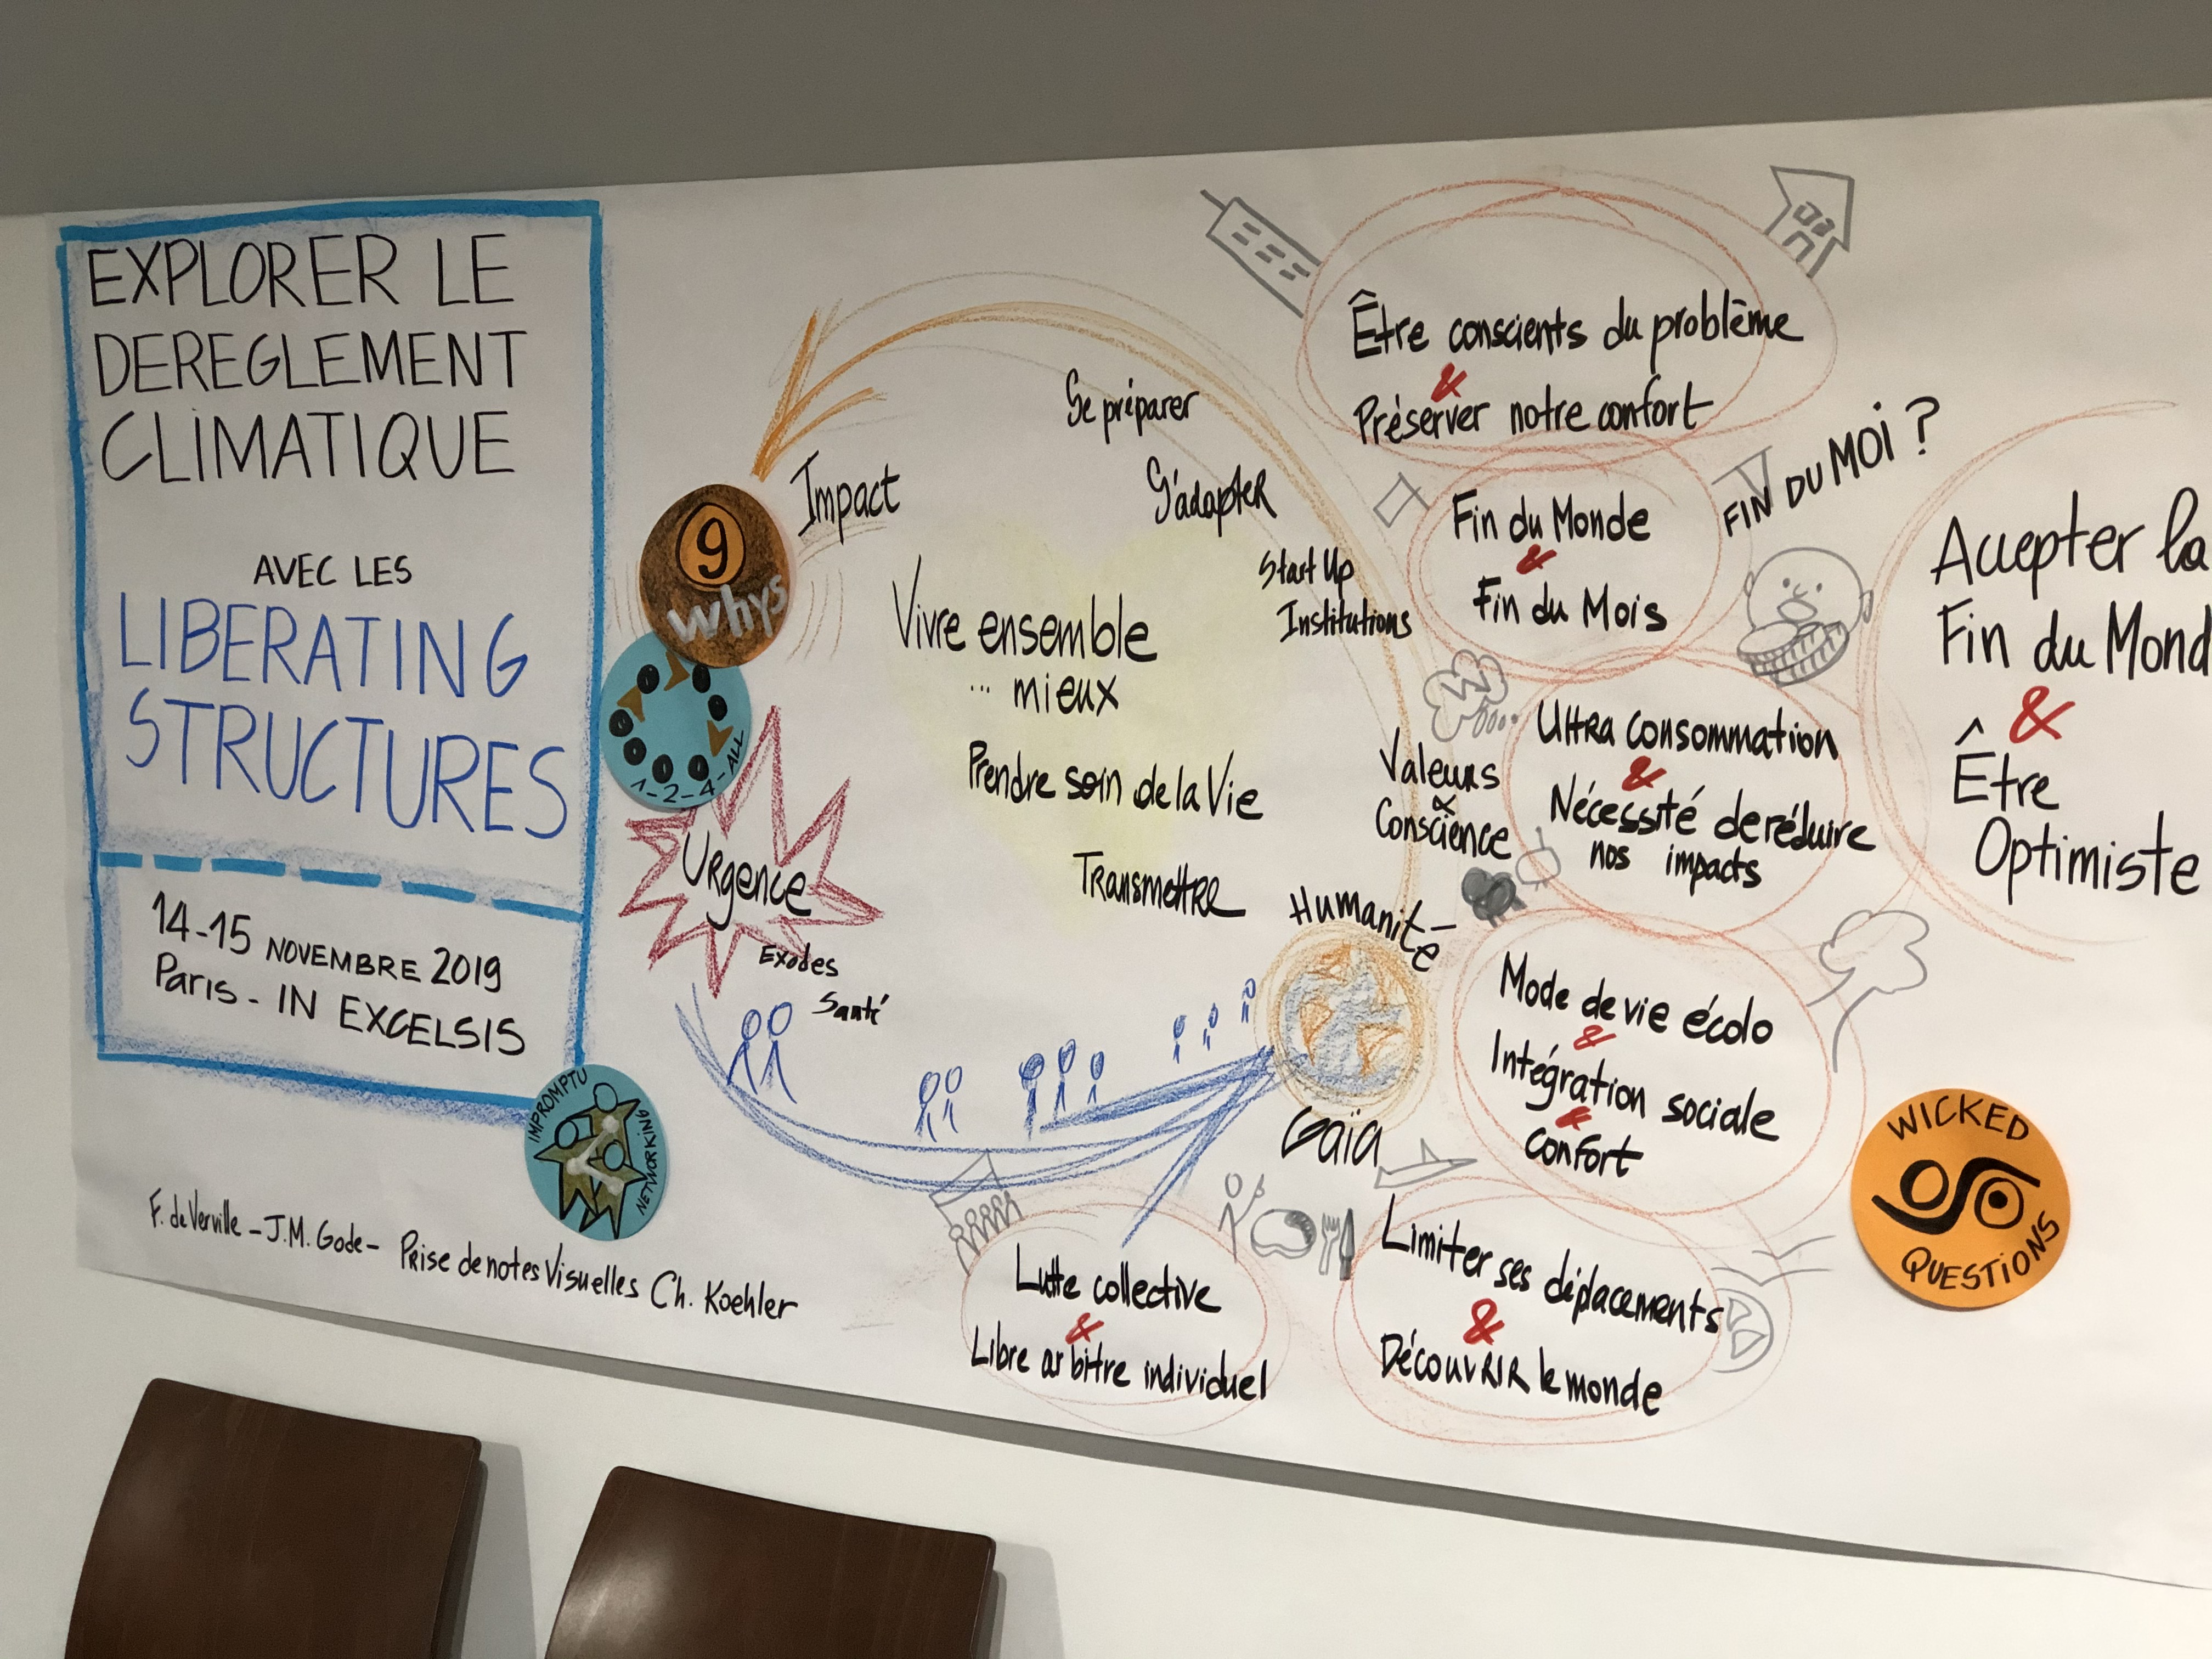 EXPLORER LE
DEREGLEMENT
CLIMATIQUE
AVEC LES
LIBERATING
STRUCTURES
14-15 NOVEMBRE 2019
Paris - IN EXCELSIS
IMPROMPTU
NETWORKING
F. de Verville - J.M. Gode - Prise de notes Visuelles Ch. Koehler
9
whys
1-2-4-ALL
Impact
Urgence
Exodes
Santé
Se préparer
S'adapter
Start Up
Institutions
Vivre ensemble
... mieux
Prendre soin de la Vie
Transmettre
Valeurs
&
Conscience
Humanité
Gaïa
Être conscients du problème
&
Préserver notre confort
Fin du Monde
&
Fin du Mois
FIN DU MOI ?
Ultra consommation
&
Nécessité de réduire
nos impacts
Mode de vie écolo
&
Intégration sociale
&
confort
Limiter ses déplacements
&
Découvrir le monde
Lutte collective
&
Libre arbitre individuel
Accepter la
Fin du Mond
&
Être
Optimiste
WICKED
QUESTIONS